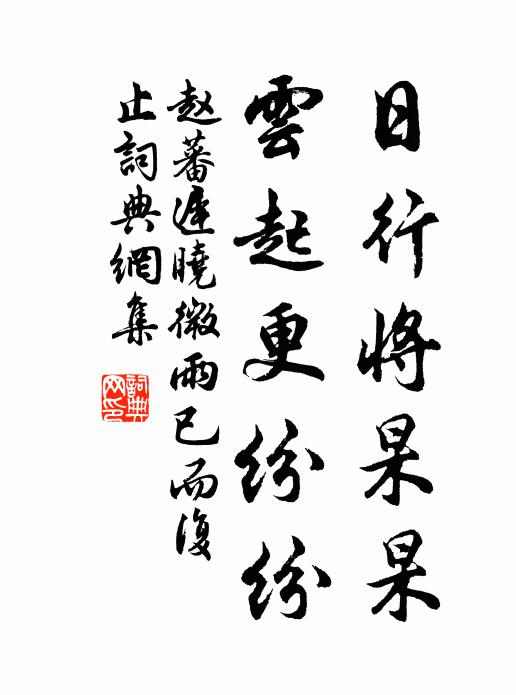 日行將杲杲
雲起更紛紛
赵蕃遲曉微雨已而復
止詞典網集
詞典网印